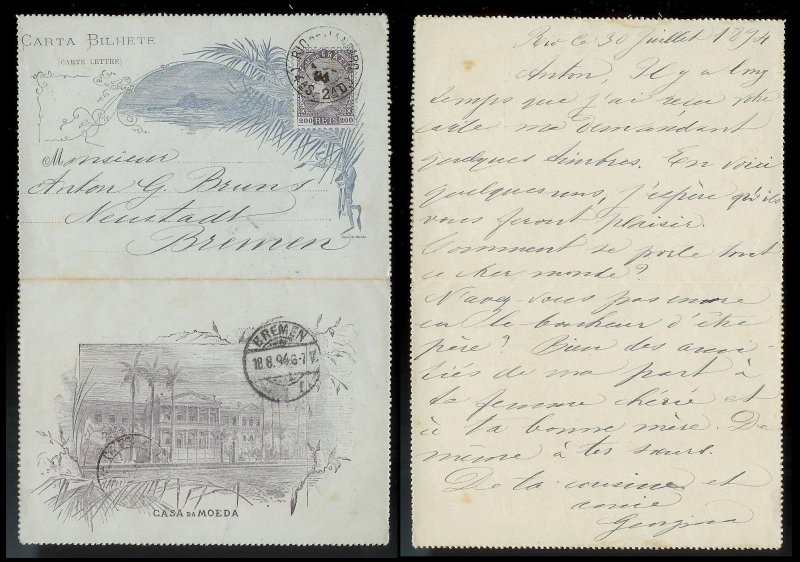 CARTA BILHETE
(CARTE LETTRE)
RIO DE JANEIRO
200 REIS 200
Monsieur
Anton G. Bruns
Neustadt
Bremen
BREMEN
18.8.94.6-7 V.
CASA DA MOEDA
Rio le 30 Juillet 1894
Anton, Il y a long
temps que j'ai reçu votre
carte me demandant
quelques timbres. En voici
quelques uns, j'espère qu'ils
vous feront plaisir.
Comment se porte tout
ce cher monde?
N'avez-vous pas encore
eu le bonheur d'être
père? Bien des ami-
tiés de ma part à
ta femme chérie et
à ta bonne mère. De
même à tes sœurs.
De ta cousine et
amie
Georgina